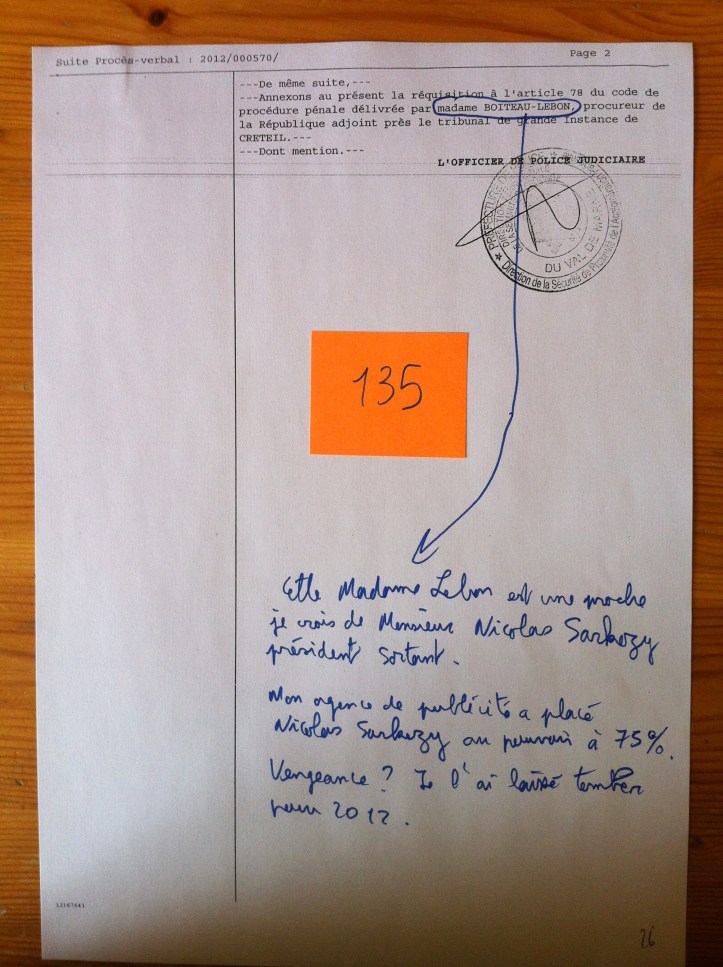 Suite Procès-verbal : 2012/000570/
Page 2
---De même suite,---
---Annexons au présent la réquisition à l'article 78 du code de
procédure pénale délivrée par madame BOITEAU-LEBON, procureur de
la République adjoint près le tribunal de grande Instance de
CRETEIL.---
---Dont mention.---
L'OFFICIER DE POLICE JUDICIAIRE
PREFECTURE DE POLICE
DU VAL DE MARNE
Direction de la Sécurité de Proximité de l'Agglo
135
Cette Madame Lebon est une proche
je crois de Monsieur Nicolas Sarkozy
président sortant.
Mon agence de publicité a placé
Nicolas Sarkozy au pouvoir à 75%.
Vengeance ? Je l'ai laissé tomber
pour 2012.
26